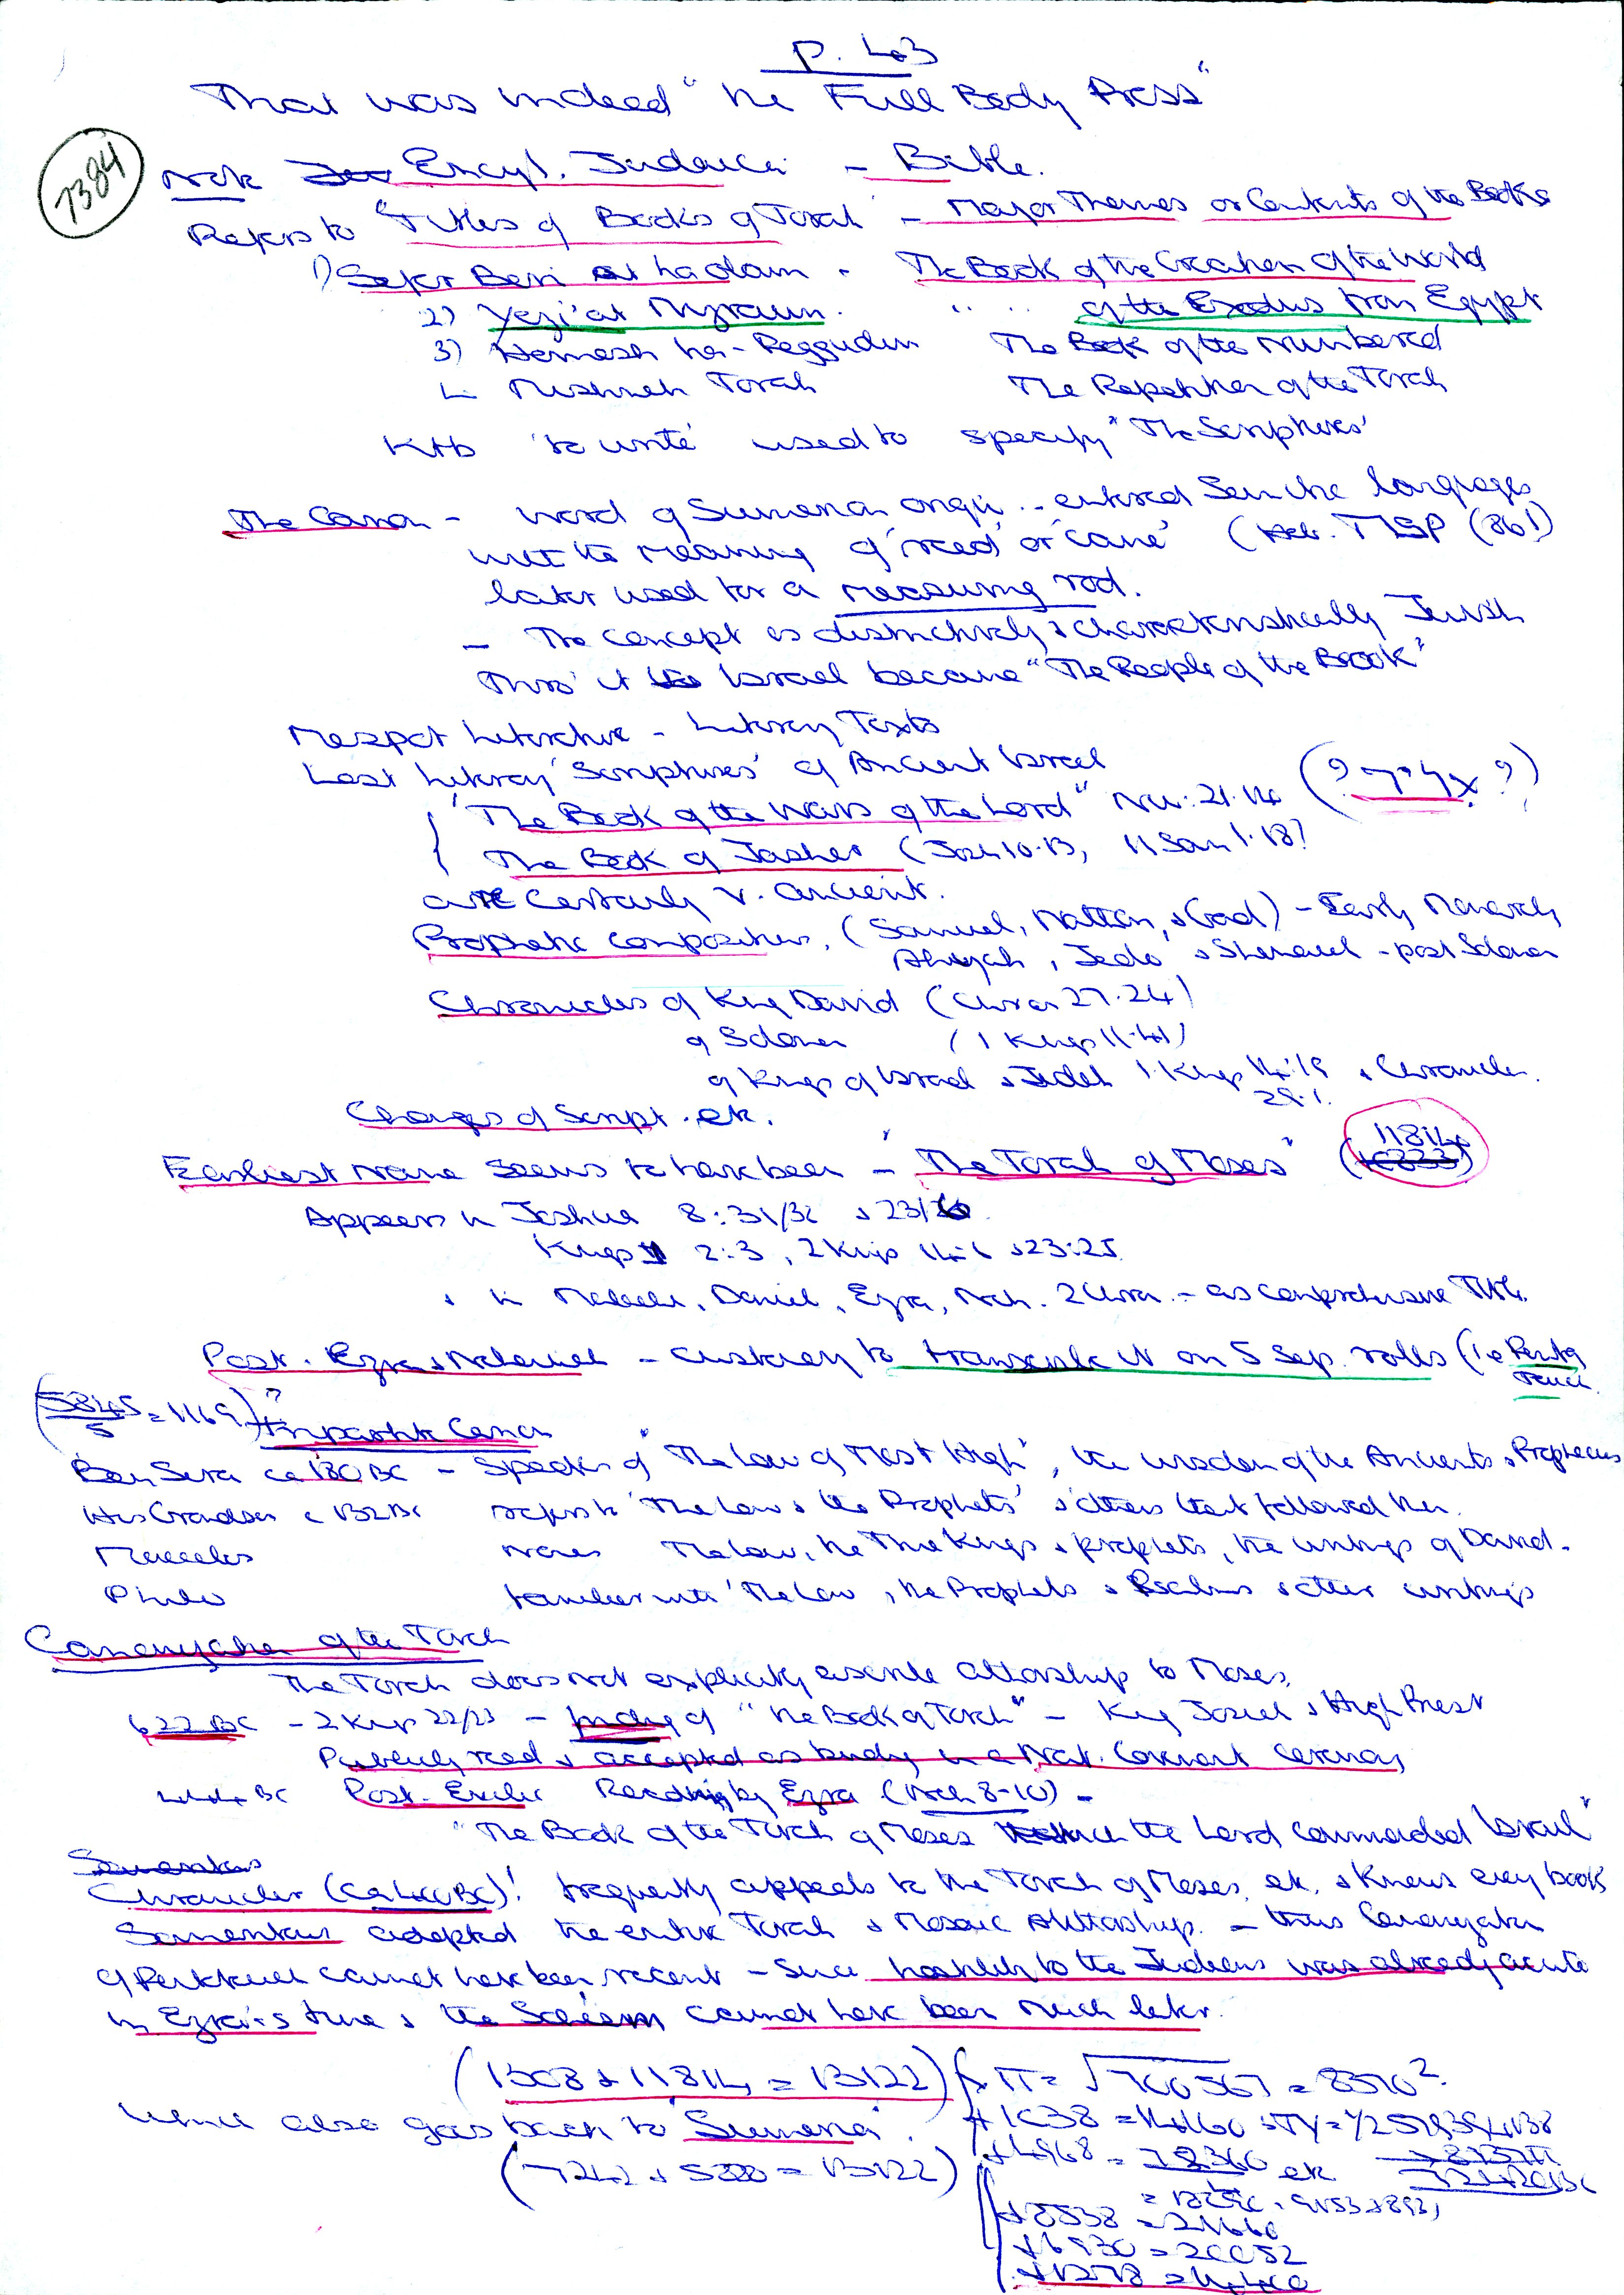 P. 403
That was indeed "the Full Body Press"
7384
Note Encycl. Judaica - Bible.
Refers to "Titles of Books of Torah" - Major Themes or Contents of the Books
1) Sefer Beri at ha olam - The Book of the Creation of the World
2) Yezi'at Mizraim. " " of the Exodus from Egypt
3) Homesh ha-Pequdim The Book of the Numbered
4 Mishneh Torah The Repetition of the Torah
Ktb 'to write' used to specify "The Scriptures'
The Canon - word of Sumerian origin .. entered Semitic languages
with the meaning of 'reed' or 'cane' (
later used for a measuring rod.
- The concept is distinctively & characteristically Jewish
Thro' it Israel became "The People of the Book"
Mesopot Literature - Literary Texts
Lost Literary 'Scriptures' of Ancient Israel
"The Book of the Wars of the Lord" Nu: 21.14
The Book of Jasher (Josh 10.13, II Sam 1.18)
are certainly v. ancient.
Prophetic compositions, (Samuel, Nathan, & Gad) - Early Monarchy
Ahijah, Jedo & Shemaiah - post Solomon
Chronicles of King David (Chron 27.24)
of Solomon (1 Kings 11.41)
of Kings of Israel & Judah 1 Kings 14:19 & Chronicles.
29.1.
Changes of Script. etc.
Earliest name seems to have been - "The Torah of Moses" (11814)
Appears in Joshua 8:31/32 & 23/6
Kings 2:3, 2 Kings 14:6 & 23:25.
& in Malachi, Daniel, Ezra, Neh. 2 Chron. - as comprehensive Title.
Post. Ezra & Nehemiah - customary to transcribe it on 5 sep. rolls (ie Penta
teuch.
(5845/5 = 1169)?
Tripartite Canon
Ben Sira ca 180 BC - Speaks of "The Law of Most High", the wisdom of the Ancients & Prophecies
His Grandson c 132 BC refers to 'The Law & the Prophets' & others that followed them.
Maccabees names The Law, the Kings & prophets, the writings of David.
Philo familiar with 'The Law, the Prophets & Psalms & other writings
Canonization of the Torah
The Torah does not explicitly ascribe authorship to Moses.
622 BC - 2 Kings 22/23 - finding of "the Book of Torah" - King Josiah & High Priest
Publicly read & accepted as binding in a Nat. Covenant Ceremony
444 BC Post. Exilic Reading by Ezra (Neh 8-10) -
"The Book of the Torah of Moses which the Lord commanded Israel"
Chronicler (Ca 400 BC)! frequently appeals to the Torah of Moses, etc. & knows every book
Samaritans adopted the entire Torah & Mosaic Authorship. - thus Canonization
of Pentateuch cannot have been recent - since hostility to the Judeans was already acute
in Ezra's time & the Schism cannot have been much later.
(1308 + 11814 = 13122)
which also goes back to 'Sumeria'.
+ 8538 = 21660
+ 6930 = 20052
+ 1278 = 14400